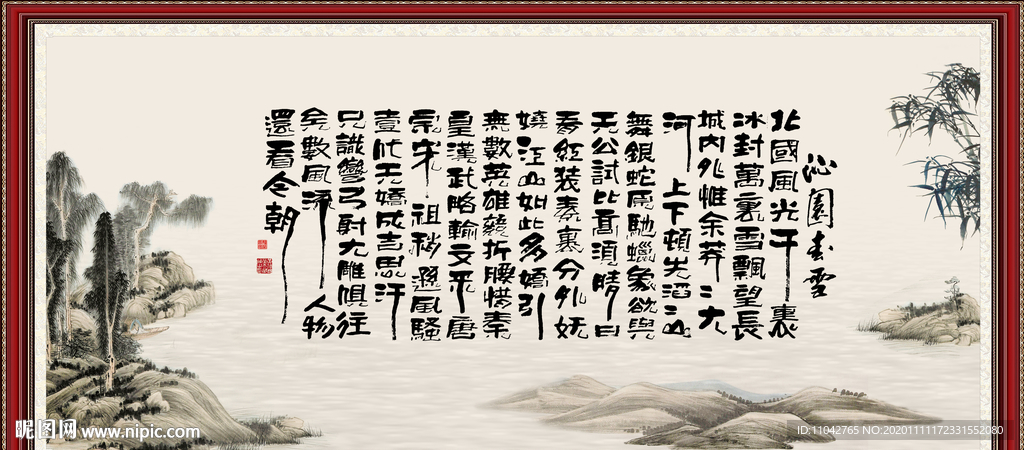 沁園春雪
北國風光千裏
冰封萬裏雪飄望長
城内外惟余莽〻大
河上下頓失滔〻山
舞銀蛇原馳蠟象欲與
天公試比高須晴日
看紅裝素裹分外妖
嬈江山如此多嬌引
無數英雄競折腰惜秦
皇漢武略輸文采唐
宗宋祖稍遜風騷
壹代天嬌成吉思汗
只識彎弓射大雕俱往
矣數風流人物
還看今朝
昵图网 www.nipic.com
ID:11042765 NO:20201111172331552080